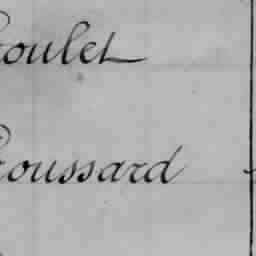 oulet
oussard